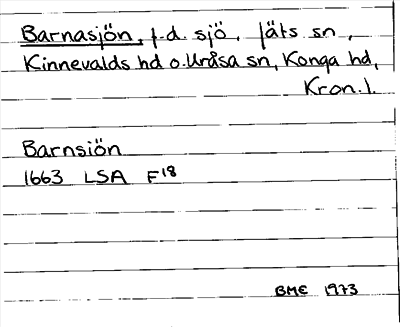 Barnasjön, f.d. sjö, Jäts sn,
Kinnevalds hd o. Uråsa sn, Konga hd,
Kron. l.
Barnsiön
1663 LSA F18
BME 1973